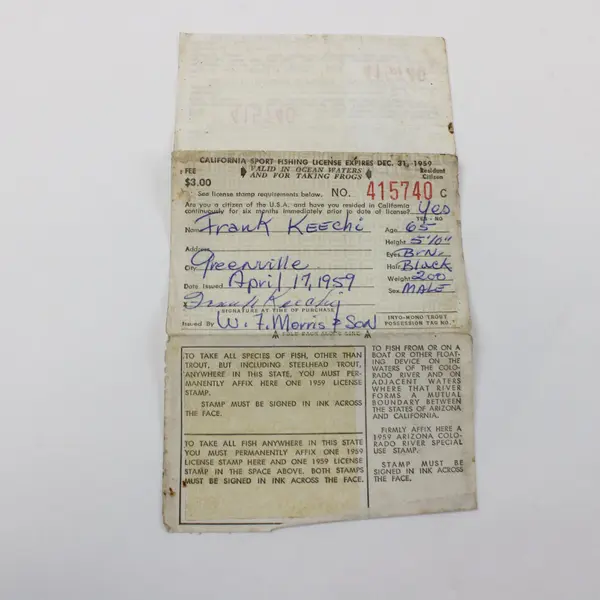 CALIFORNIA SPORT FISHING LICENSE EXPIRES DEC. 31, 1959
FEE
$3.00
VALID IN OCEAN WATERS
AND FOR TAKING FROGS
Resident
Citizen
See license stamp requirements below. NO. 415740 C
Are you a citizen of the U.S.A. and have you resided in California
continuously for six months immediately prior to date of license? Yes
YES - NO
Name Frank Keechi
Age 65
Height 5'10"
Address
Eyes Brn.
City Greenville
Hair Black
Date Issued April 17, 1959
Weight 200
Sex MALE
X Frank Keechi
SIGNATURE AT TIME OF PURCHASE
Issued By W. F. Morris & Son
INYO-MONO TROUT
POSSESSION TAG NO.
TO TAKE ALL SPECIES OF FISH, OTHER THAN
TROUT, BUT INCLUDING STEELHEAD TROUT,
ANYWHERE IN THIS STATE, YOU MUST PER-
MANENTLY AFFIX HERE ONE 1959 LICENSE
STAMP.
STAMP MUST BE SIGNED IN INK ACROSS
THE FACE.
TO TAKE ALL FISH ANYWHERE IN THIS STATE
YOU MUST PERMANENTLY AFFIX ONE 1959
LICENSE STAMP HERE AND ONE 1959 LICENSE
STAMP IN THE SPACE ABOVE. BOTH STAMPS
MUST BE SIGNED IN INK ACROSS THE FACE.
TO FISH FROM OR ON A
BOAT OR OTHER FLOAT-
ING DEVICE ON THE
WATERS OF THE COLO-
RADO RIVER AND ON
ADJACENT WATERS
WHERE THAT RIVER
FORMS A MUTUAL
BOUNDARY BETWEEN
THE STATES OF ARIZONA
AND CALIFORNIA.
FIRMLY AFFIX HERE A
1959 ARIZONA COLO-
RADO RIVER SPECIAL
USE STAMP.
STAMP MUST BE
SIGNED IN INK ACROSS
THE FACE.